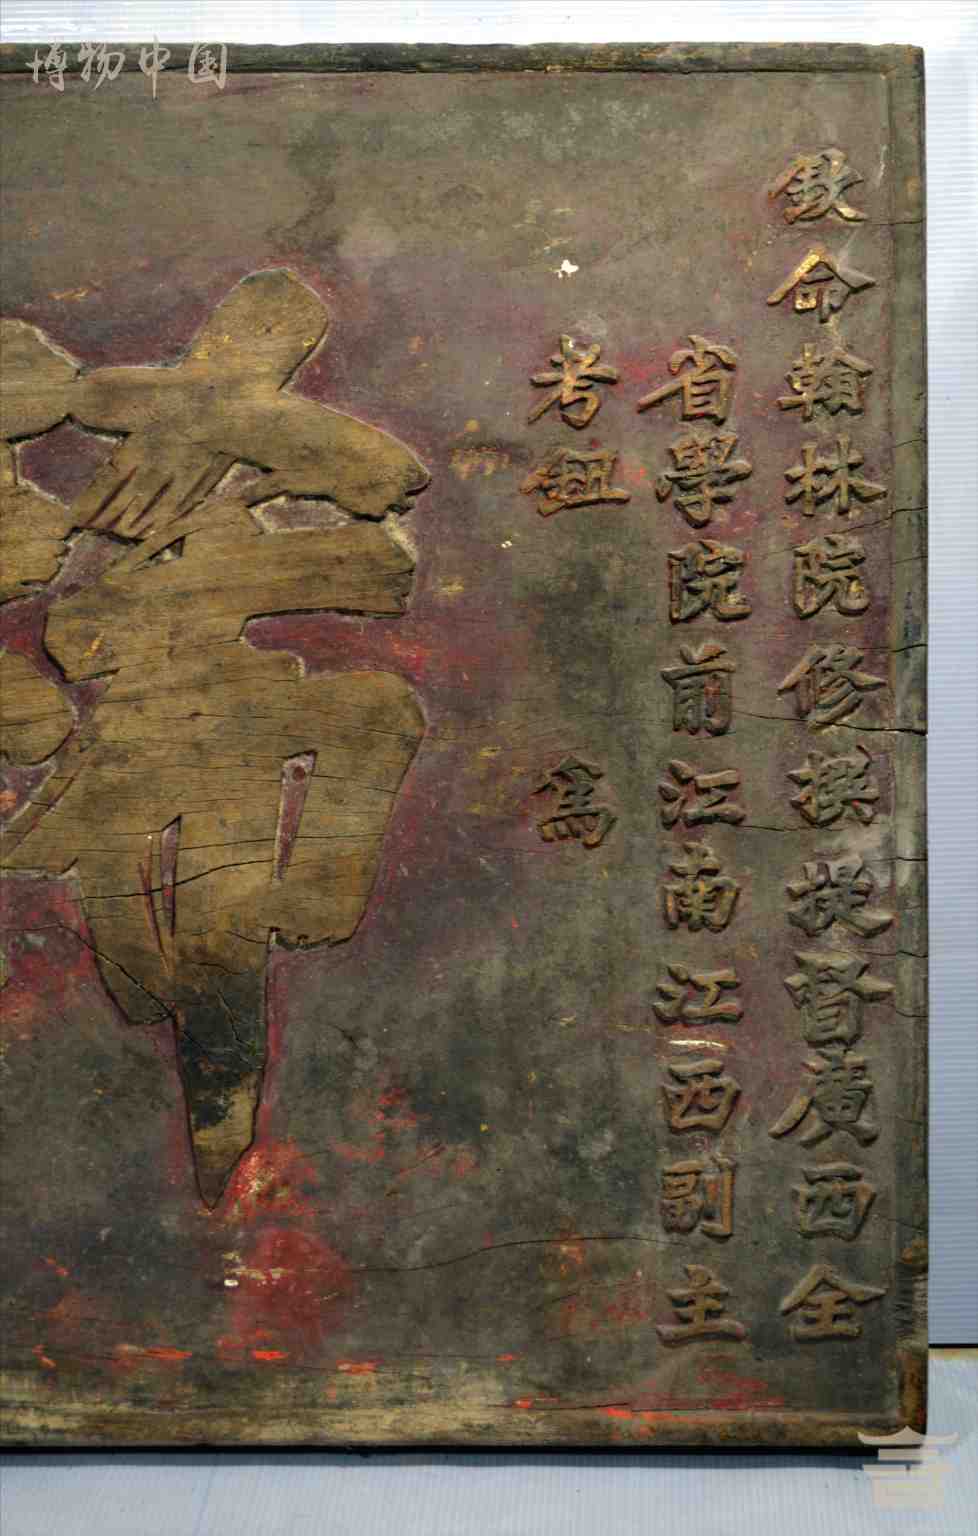 欽命翰林院修撰提督廣西全
省學院前江南江西副主
考鈕 爲
博物中国